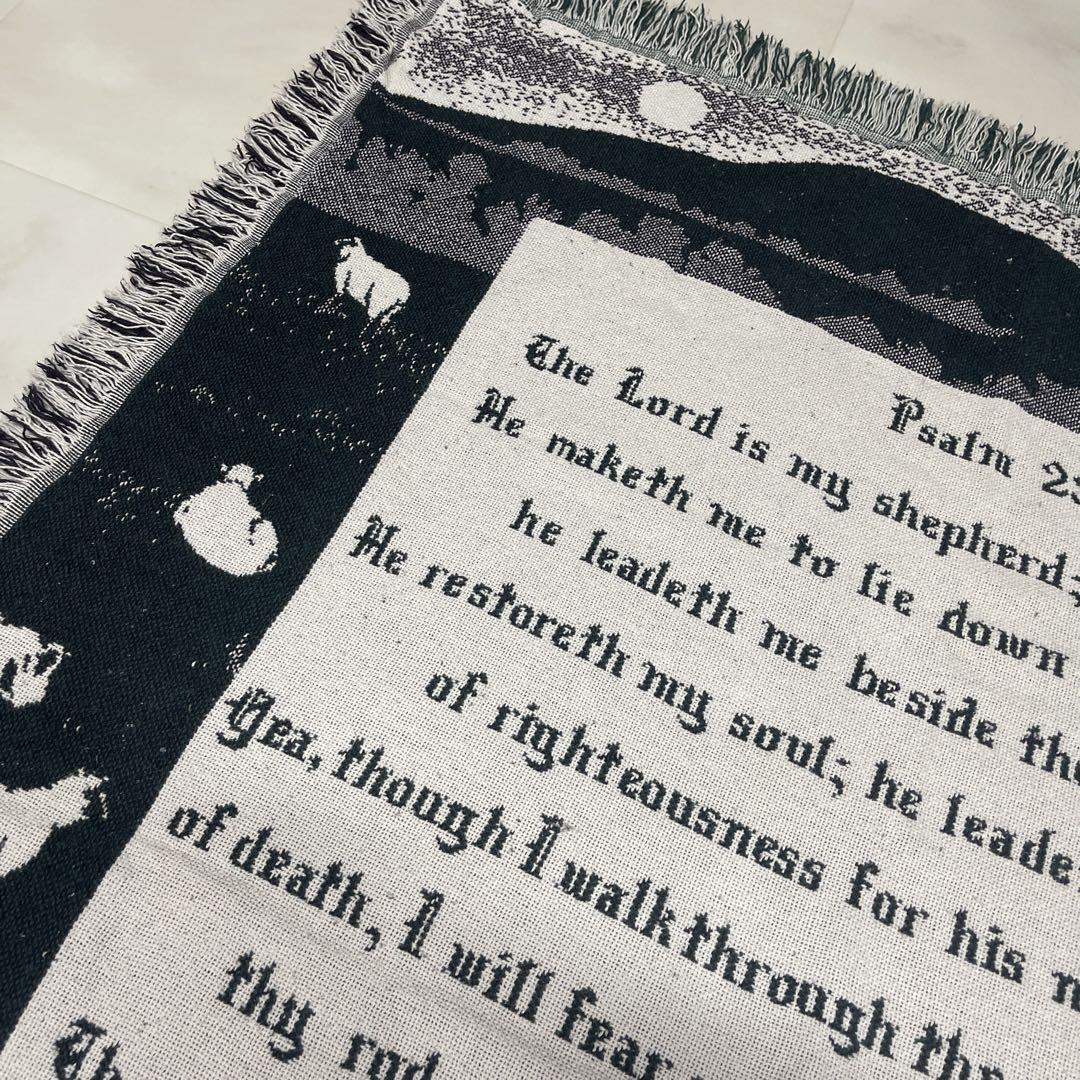 Psalm 23
The Lord is my shepherd;
He maketh me to lie down
he leadeth me beside the
He restoreth my soul; he leade
of righteousness for his n
Yea, though I walk through the
of death, I will fear
thy rod
Th